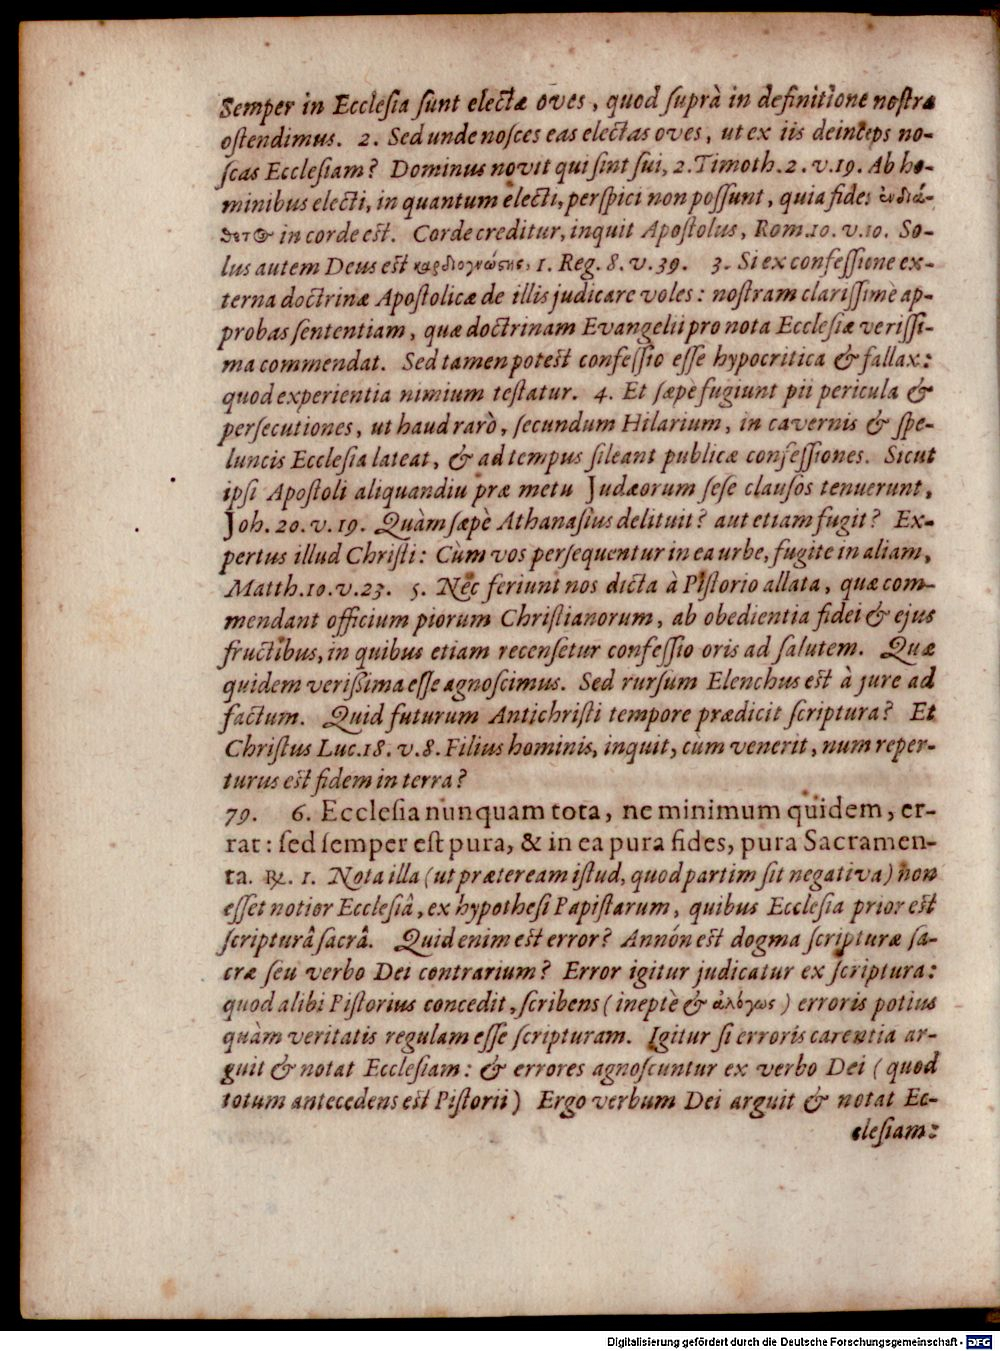 Semper in Ecclesia sunt electæ oves, quod suprà in definitione nostra
ostendimus. 2. Sed unde nosces eas electas oves, ut ex iis deinceps no-
scas Ecclesiam? Dominus novit qui sint sui, 2. Timoth. 2. v. 19. Ab ho-
minibus electi, in quantum electi, perspici non possunt, quia fides ἐνδιά-
θετ@ in corde est. Corde creditur, inquit Apostolus, Rom. 10. v. 10. So-
lus autem Deus est καρδιογνώςης, 1. Reg. 8. v. 39. 3. Si ex confessione ex-
terna doctrinæ Apostolicæ de illis judicare voles: nostram clarissimè ap-
probas sententiam, quæ doctrinam Evangelii pro nota Ecclesiæ verissi-
ma commendat. Sed tamen potest confessio esse hypocritica & fallax:
quod experientia nimium testatur. 4. Et sæpè fugiunt pii pericula &
persecutiones, ut haud rarò, secundum Hilarium, in cavernis & spe-
luncis Ecclesia lateat, & ad tempus sileant publicæ confessiones. Sicut
ipsi Apostoli aliquandiu præ metu Judæorum sese clausos tenuerunt,
Joh. 20. v. 19. Quàm sæpè Athanasius delituit? aut etiam fugit? Ex-
pertus illud Christi: Cùm vos persequentur in ea urbe, fugite in aliam,
Matth. 10. v. 23. 5. Nec feriunt nos dicta à Pistorio allata, quæ com-
mendant officium piorum Christianorum, ab obedientia fidei & ejus
fructibus, in quibus etiam recensetur confessio oris ad salutem. Quæ
quidem verißima esse agnoscimus. Sed rursum Elenchus est à jure ad
factum. Quid futurum Antichristi tempore prædicit scriptura? Et
Christus Luc. 18. v. 8. Filius hominis, inquit, cum venerit, num reper-
turus est fidem in terra?
79. 6. Ecclesia nunquam tota, ne minimum quidem, er-
rat: sed semper est pura, & in ea pura fides, pura Sacramen-
ta. ℞. 1. Nota illa (ut præteream istud, quod partim sit negativa) non
esset notior Ecclesiâ, ex hypothesi Papistarum, quibus Ecclesia prior est
scripturâ sacrâ. Quid enim est error? Annón est dogma scripturæ sa-
cræ seu verbo Dei contrarium? Error igitur judicatur ex scriptura:
quod alibi Pistorius concedit, scribens (ineptè & ἀλόγως) erroris potius
quàm veritatis regulam esse scripturam. Igitur si erroris carentia ar-
guit & notat Ecclesiam: & errores agnoscuntur ex verbo Dei (quod
totum antecedens est Pistorii) Ergo verbum Dei arguit & notat Ec-
clesiam:
Digitalisierung gefördert durch die Deutsche Forschungsgemeinschaft - DFG